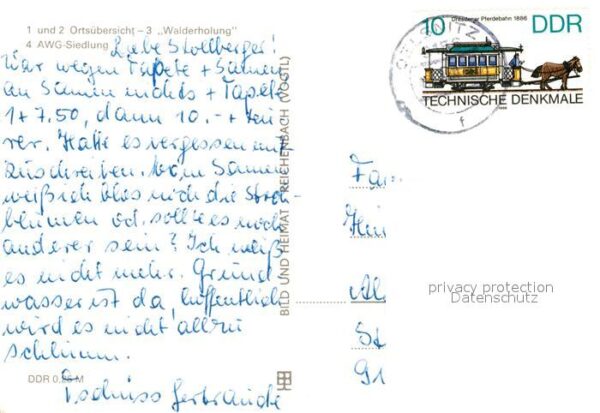 1 und 2 Ortsübersicht – 3 „Walderholung"
4 AWG-Siedlung
Liebe Stollberger!
War wegen Tapete + Samen
an Samen nichts + Tapete
1 + 7.50, dann 10.- + teu
rer. Hatte es vergessen mit
zuschreiben. beim Samen
weiß ich blos nich die Stroh-
blumen od. sollte es noch
anderer sein? Ich weiß
es nicht mehr. Grund
wasser ist da, hoffentlich
wird es nicht allzu
schlimm.
Tschüss Gertraude
DDR 0,25 M
BILD UND HEIMAT REICHENBACH (VOGTL)
10 Dresdener Pferdebahn 1886 DDR
TECHNISCHE DENKMALE
1986
Fa
St
91
privacy protection
Datenschutz